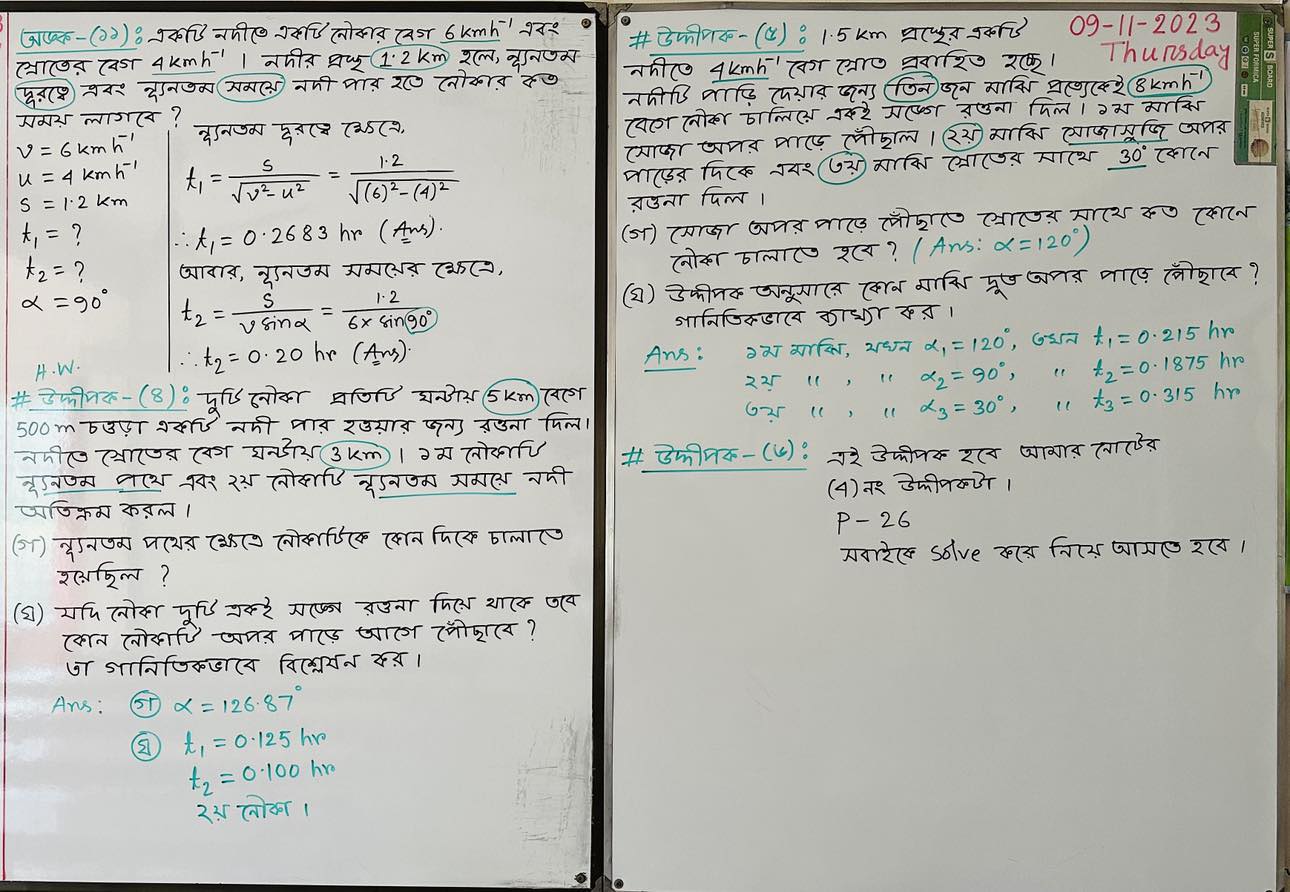 অংক-(১১): একটি নদীতে একটি নৌকার বেগ 6 kmh⁻¹ এবং
স্রোতের বেগ 4 kmh⁻¹ । নদীর প্রস্থ 1.2 km হলে, ন্যূনতম
দূরত্বে এবং ন্যূনতম সময়ে নদী পার হতে নৌকার কত
সময় লাগবে ?
v = 6 kmh⁻¹
u = 4 kmh⁻¹
s = 1.2 km
t₁ = ?
t₂ = ?
α = 90°
ন্যূনতম দূরত্বে ক্ষেত্রে,
t₁ = s/√(v² - u²) = 1.2/√((6)² - (4)²)
∴ t₁ = 0.2683 hr (Ans).
আবার, ন্যূনতম সময়ের ক্ষেত্রে,
t₂ = s/(v sinα) = 1.2/(6 × sin 90°)
∴ t₂ = 0.20 hr (Ans).
H.W.
# উদ্দীপক-(৪): দুটি নৌকা প্রতিটি ঘন্টায় 5 km বেগে
500 m চওড়া একটি নদী পার হওয়ার জন্য রওনা দিল।
নদীতে স্রোতের বেগ ঘন্টায় 3 km । ১ম নৌকাটি
ন্যূনতম পথে এবং ২য় নৌকাটি ন্যূনতম সময়ে নদী
অতিক্রম করল ।
(গ) ন্যূনতম পথের ক্ষেত্রে নৌকাটিকে কোন দিকে চালাতে
হয়েছিল ?
(ঘ) যদি নৌকা দুটি একই সঙ্গে রওনা দিয়ে থাকে তবে
কোন নৌকাটি অপর পাড়ে আগে পৌঁছাবে ?
তা গানিতিকভাবে বিশ্লেষন কর ।
Ans: (গ) α = 126.87°
(ঘ) t₁ = 0.125 hr
t₂ = 0.100 hr
২য় নৌকা ।
09-11-2023
Thursday
SUPER S BOARD
SUPER FORMICA
# উদ্দীপক-(৫) : 1.5 km প্রস্থের একটি
নদীতে 4 kmh⁻¹ বেগে স্রোত প্রবাহিত হচ্ছে।
নদীটি পাড়ি দেয়ার জন্য তিন জন মাঝি প্রত্যেকেই 8 kmh⁻¹
বেগে নৌকা চালিয়ে একই সঙ্গে রওনা দিল । ১ম মাঝি
সোজা অপর পাড়ে পৌঁছাল । ২য় মাঝি সোজাসুজি অপর
পাড়ের দিকে এবং ৩য় মাঝি স্রোতের সাথে 30° কোনে
রওনা দিল ।
(গ) সোজা অপর পাড়ে পৌঁছাতে স্রোতের সাথে কত কোনে
নৌকা চালাতে হবে ? (Ans: α = 120°)
(ঘ) উদ্দীপক অনুসারে কোন মাঝি দ্রুত অপর পাড়ে পৌঁছাবে ?
গানিতিকভাবে ব্যাখ্যা কর ।
Ans: ১ম মাঝি, যখন α₁ = 120°, তখন t₁ = 0.215 hr
২য় " , " α₂ = 90°, " t₂ = 0.1875 hr
৩য় " , " α₃ = 30°, " t₃ = 0.315 hr
# উদ্দীপক-(৬) : এই উদ্দীপক হবে আমার নোটের
(4) নং উদ্দীপকটা ।
P - 26
সবাইকে solve করে নিয়ে আসতে হবে ।